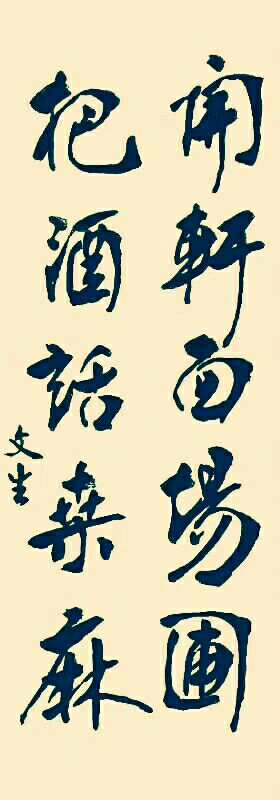 開軒面場圃
把酒話桑麻
文生